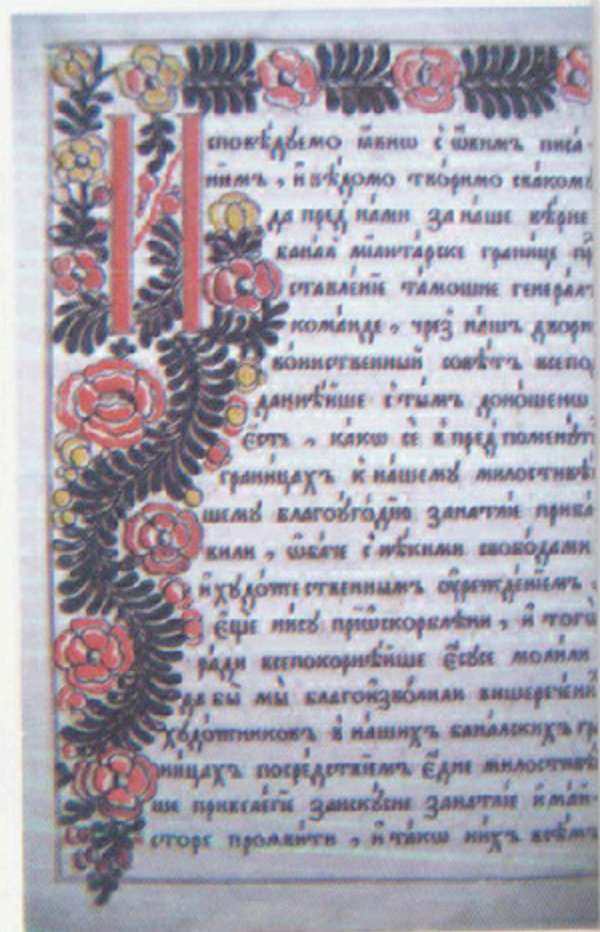 И
сповѣдуемо ꙗвиш с ѡвимъ писа-
нїемъ, и вѣдомо творимо свакому
да пред нами за наше вѣрне
баналⷭ милитарске границе пр
ставленїе тамошне генерал
команде, чрез нашъ дворн
воинственный совѣтъ всепо
даннѣйше с тымъ доношенѡ
єсть, какѡ се в пред поменут
границахъ к нашему милостивѣ
шему благоугодїю занатлїе приба
вили, ѡбаче с нѣкими свободами
и художественнымъ оучрежденїемъ
єще нису прїѡскорблѣни, и тогѡ
ради всепокорнѣйше єсусе молили
да бы мы благоизволили вишеречени
художниковъ в нашихъ баналскихъ гр
ницахъ посредствїемъ єдне милостивѣ
ше привелегїе занскусне занатлїе и май-
сторе промвити, и такѡ нихъ всѣмъ